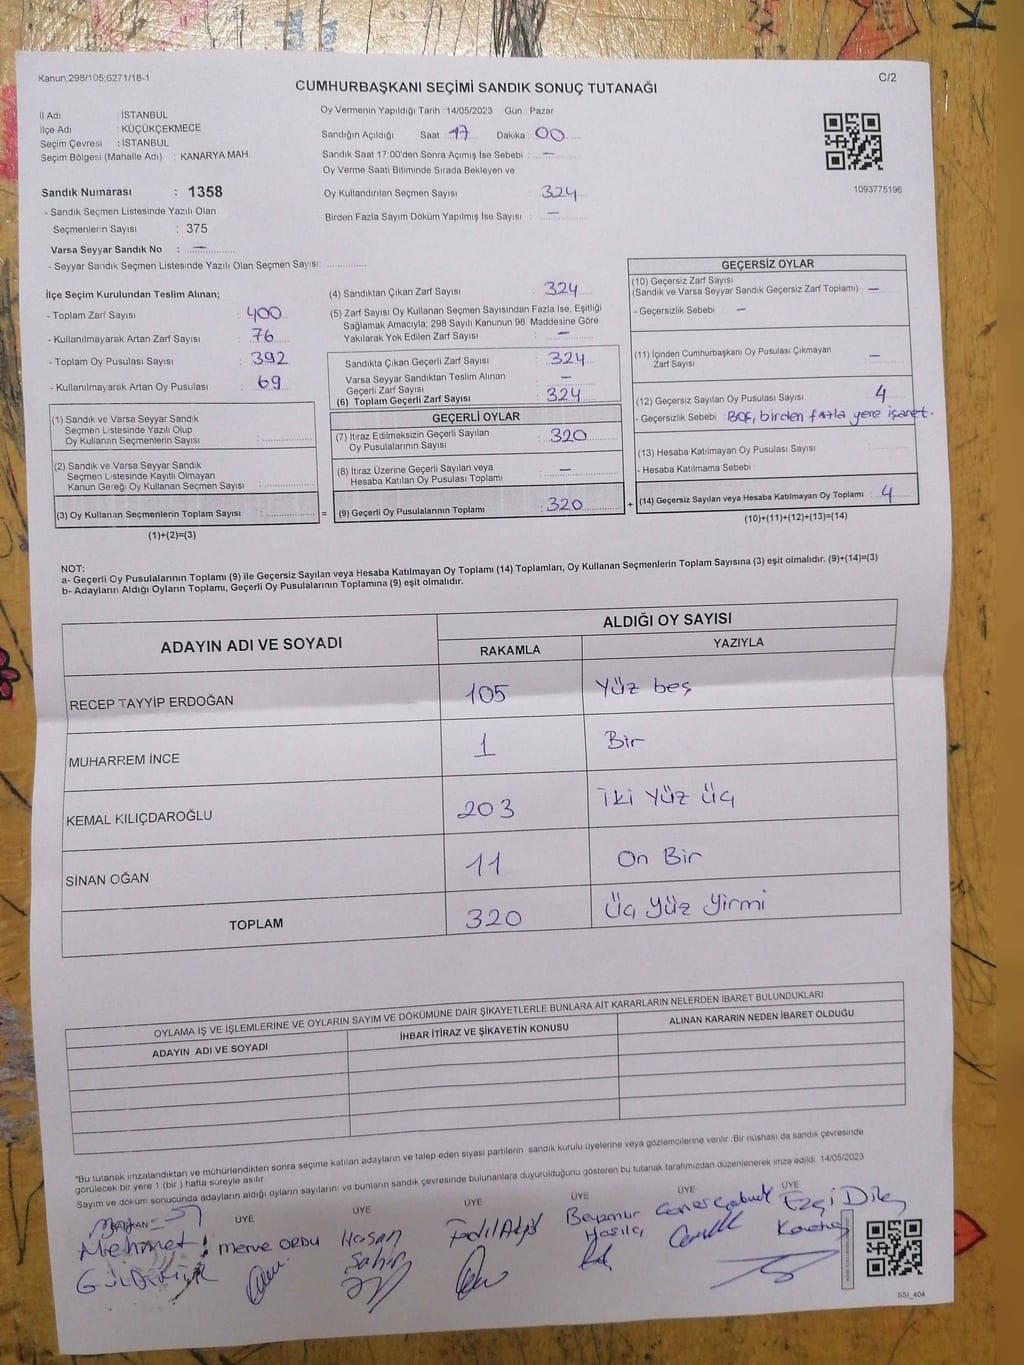 Kanun,298/105;6271/18-1
C/2
CUMHURBAŞKANI SEÇİMİ SANDIK SONUÇ TUTANAĞI
İl Adı : İSTANBUL
İlçe Adı : KÜÇÜKÇEKMECE
Seçim Çevresi : İSTANBUL
Seçim Bölgesi (Mahalle Adı) : KANARYA MAH.
Sandık Numarası : 1358
- Sandık Seçmen Listesinde Yazılı Olan
Seçmenlerin Sayısı : 375
Varsa Seyyar Sandık No : —
- Seyyar Sandık Seçmen Listesinde Yazılı Olan Seçmen Sayısı:
Oy Vermenin Yapıldığı Tarih :14/05/2023 Gün : Pazar
Sandığın Açıldığı Saat : 17 Dakika : 00
Sandık Saat 17:00'den Sonra Açımış İse Sebebi : —
Oy Verme Saati Bitiminde Sırada Bekleyen ve
Oy Kullandırılan Seçmen Sayısı 324
Birden Fazla Sayım Döküm Yapılmış İse Sayısı : —
1093775196
İlçe Seçim Kurulundan Teslim Alınan;
- Toplam Zarf Sayısı : 400
- Kullanılmayarak Artan Zarf Sayısı : 76
- Toplam Oy Pusulası Sayısı : 392
- Kullanılmayarak Artan Oy Pusulası : 69
(1) Sandık ve Varsa Seyyar Sandık
Seçmen Listesinde Yazılı Olup
Oy Kullanan Seçmenlerin Sayısı :
(2) Sandık ve Varsa Seyyar Sandık
Seçmen Listesinde Kayıtlı Olmayan
Kanun Gereği Oy Kullanan Seçmen Sayısı :
(3) Oy Kullanan Seçmenlerin Toplam Sayısı :
(1)+(2)=(3)
(4) Sandıktan Çıkan Zarf Sayısı : 324
(5) Zarf Sayısı Oy Kullanan Seçmen Sayısından Fazla İse, Eşitliği
Sağlamak Amacıyla; 298 Sayılı Kanunun 98. Maddesine Göre
Yakılarak Yok Edilen Zarf Sayısı : —
Sandıkta Çıkan Geçerli Zarf Sayısı : 324
Varsa Seyyar Sandıktan Teslim Alınan
Geçerli Zarf Sayısı : —
(6) Toplam Geçerli Zarf Sayısı : 324
GEÇERLİ OYLAR
(7) İtiraz Edilmeksizin Geçerli Sayılan
Oy Pusulalarının Sayısı : 320
(8) İtiraz Üzerine Geçerli Sayılan veya
Hesaba Katılan Oy Pusulası Toplamı : —
= (9) Geçerli Oy Pusulalarının Toplamı : 320 +
GEÇERSİZ OYLAR
(10) Geçersiz Zarf Sayısı
(Sandık ve Varsa Seyyar Sandık Geçersiz Zarf Toplamı) : —
- Geçersizlik Sebebi : —
(11) İçinden Cumhurbaşkanı Oy Pusulası Çıkmayan
Zarf Sayısı : —
(12) Geçersiz Sayılan Oy Pusulası Sayısı : 4
- Geçersizlik Sebebi : Boş, birden fazla yere işaret.
(13) Hesaba Katılmayan Oy Pusulası Sayısı :
- Hesaba Katılmama Sebebi :
(14) Geçersiz Sayılan veya Hesaba Katılmayan Oy Toplamı : 4
(10)+(11)+(12)+(13)=(14)
NOT:
a- Geçerli Oy Pusulalarının Toplamı (9) ile Geçersiz Sayılan veya Hesaba Katılmayan Oy Toplamı (14) Toplamları, Oy Kullanan Seçmenlerin Toplam Sayısına (3) eşit olmalıdır. (9)+(14)=(3)
b- Adayların Aldığı Oyların Toplamı, Geçerli Oy Pusulalarının Toplamına (9) eşit olmalıdır.
ADAYIN ADI VE SOYADI
ALDIĞI OY SAYISI
RAKAMLA YAZIYLA
RECEP TAYYİP ERDOĞAN 105 Yüz beş
MUHARREM İNCE 1 Bir
KEMAL KILIÇDAROĞLU 203 İki Yüz Üç
SİNAN OĞAN 11 On Bir
TOPLAM 320 Üç Yüz Yirmi
OYLAMA İŞ VE İŞLEMLERİNE VE OYLARIN SAYIM VE DÖKÜMÜNE DAİR ŞİKAYETLERLE BUNLARA AİT KARARLARIN NELERDEN İBARET BULUNDUKLARI
ADAYIN ADI VE SOYADI İHBAR İTİRAZ VE ŞİKAYETİN KONUSU ALINAN KARARIN NEDEN İBARET OLDUĞU
"Bu tutanak imzalandıktan ve mühürlendikten sonra seçime katılan adayların ve talep eden siyasi partilerin sandık kurulu üyelerine veya gözlemcilerine verilir .Bir nüshası da sandık çevresinde
görülecek bir yere 1 (bir ) hafta süreyle asılır
Sayım ve döküm sonucunda adayların aldığı oyların sayılarını ve bunların sandık çevresinde bulunanlara duyurulduğunu gösteren bu tutanak tarafımızdan düzenlenerek imza edildi. 14/05/2023
BAŞKAN ÜYE ÜYE ÜYE ÜYE ÜYE ÜYE
Mehmet
Merve ORDU
Hasan
Şahin
Ezgi
SSI_404